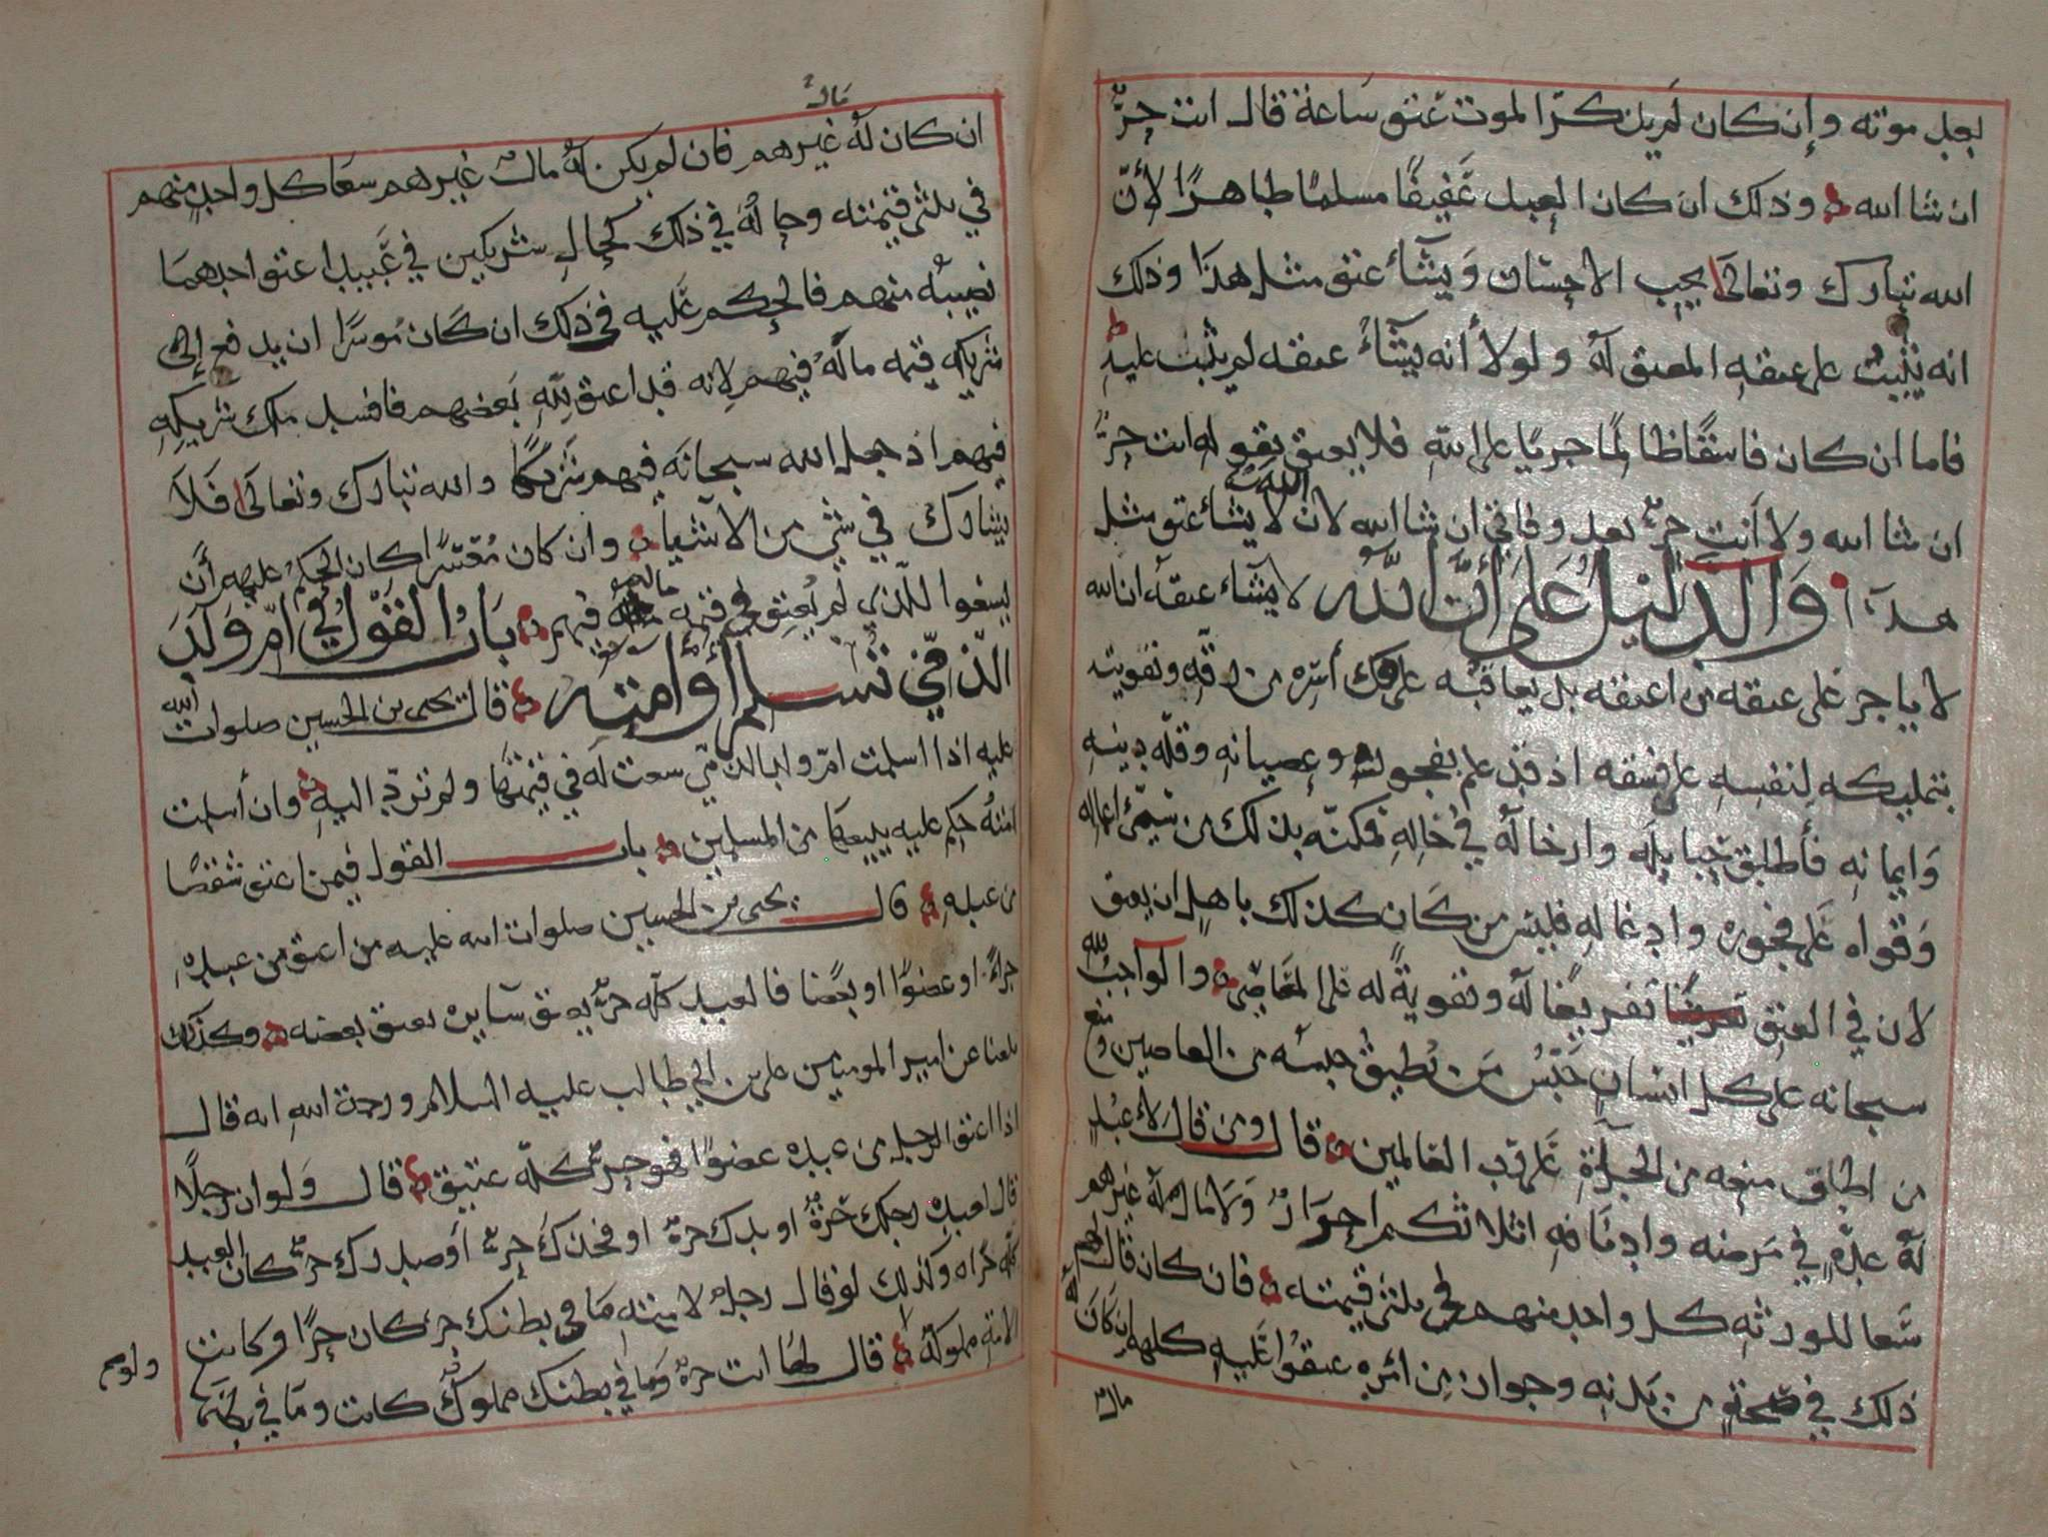 بعد موته وإن كان لم يذكر الموت عتق ساعة قال انت حرٌّ
ان شا الله وذلك ان كان العبد عَفيفًا مسلمًا طاهرًا لأنّ
الله تبارك وتعالى يحب الاحسان وَيشآء عتق مثل هذا وذلك
انه يُثيبُ على عتقهِ المعتق لهُ ولولا أنه يشآءُ عتقه لم يثب عليهِ
فاما ان كان فاسقًا ظالمًا جريًا على اللهِ فلا يعتق بقوله انت حرٌّ
ان شا الله ولا أنت حرٌّ بعد وفاتي ان شا الله لان الله لا يشاء عتق مثل
هذا والدليل على أنّ الله لا يشآء عتقهُ ان الله
لا ياجر على عتقه من اعتقه بل يعاقبُه على فك أسره من رقه وتقويته
بتمليكه لِنفسِهِ على فِسقه اذ قد علم بفجوره وعصيانهِ وقلّه دينهِ
وَايمانهِ فأطلق حِبايله وارخا له في حالهِ فمكنّه بذلك من سَيّئ اعماله
وَقواه عَلى فجوره وادغاله فليس من كان كذلك باهلٍ ان يعتق
لان في العتق تفريغًا لهُ وتقويةً له على المعَاصِي والواجب لله
سبحانه على كل انسانٍ حَبْسُ مَن يُطيق حبسه من العاصين ومنع
من اطاق منعه من الجرأةِ عَلى رَب العالمين قال ومن قال لأعبُدٍ
لهُ عدّةٍ في مَرضه وادنافهِ اثلاثكم احرارٌ وَلا مال له غيرهم
سَعا للورثه كل واحدٍ منهم في ثلثي قيمته فان كان قال لهم
ذلك في صحةٍ من بَدنه وجوازٍ مِن امرِهِ عتقوُا عَليهِ كلهم إن كَانَ له
مالٌ
مالٌ
ان كان لهُ غيرهم فان لم يكن لهُ مالٌ غيرهم سعَا كل واحدٍ منهم
في ثلثي قيمته وحالهُ في ذلك كحال شريكين في عَبيدٍ اعتق احدهمَا
نصيبهُ منهم فالحكم عَليه في ذلك ان كَان مُوسرًا ان يدفع إلى
شريكه قيمه مالهُ فيهم لِانه قد اعتق لِلّهِ بَعضهم فافسد ملك شريكِهِ
فيهم اذ جعل الله سبحانَه فيهم شَركًا والله تبارك وتعالى فَلاَ
يشارك في شيٍ من الاشيا وان كان مُعْسرًا كان الحكمُ عليهم أن
يسعوا للذي لم يُعتِق في قيمه ماله فيهم بَابُ القَوْل في امّ وَلَد
الذّمّي تُسلم أوْ امته قال يحيى بن الحسين صلوات الله
عليه اذا اسلمت امّ ولد الذمّي سعت له في قيمتهَا ولم تردّ اليهِ وان أسلمت
امتهُ حكم عليه ببيعهَا من المسلمين باب القول فيمن اعتق شقصًا
من عبدِهِ قال يحيى بن الحسين صلوات الله عليه من اعتق من عبدهِ
جزاءً او عضوًا او بعضًا فالعبد كله حرٌّ يعتق سَايره بعتق بعضه وكذلك
بلغنا عن امير المومنين على بن ابي طالب عليه السلام ورحمة اللهِ انه قال
اذا اعتق الرجل من عبده عضوًا فهو حرٌّ كلّه عتيق قال وَلو ان رجلًا
قال لعبدِهِ رجلك حَرةٌ او يدك حرةٌ او فخذك حرٌّ أو صدرك حرٌّ كان العبد
كلّه حرًا وكذلك لو قال رجلٌ لامتِهِ مَا في بطنك حرٌّ كان حرًّا وكانت
الامةُ مملوكةٌ قال لهَا انت حرهٌ ومَا في بطنك مملوكٌ كانت ومَا في بطنِهَا
ولو